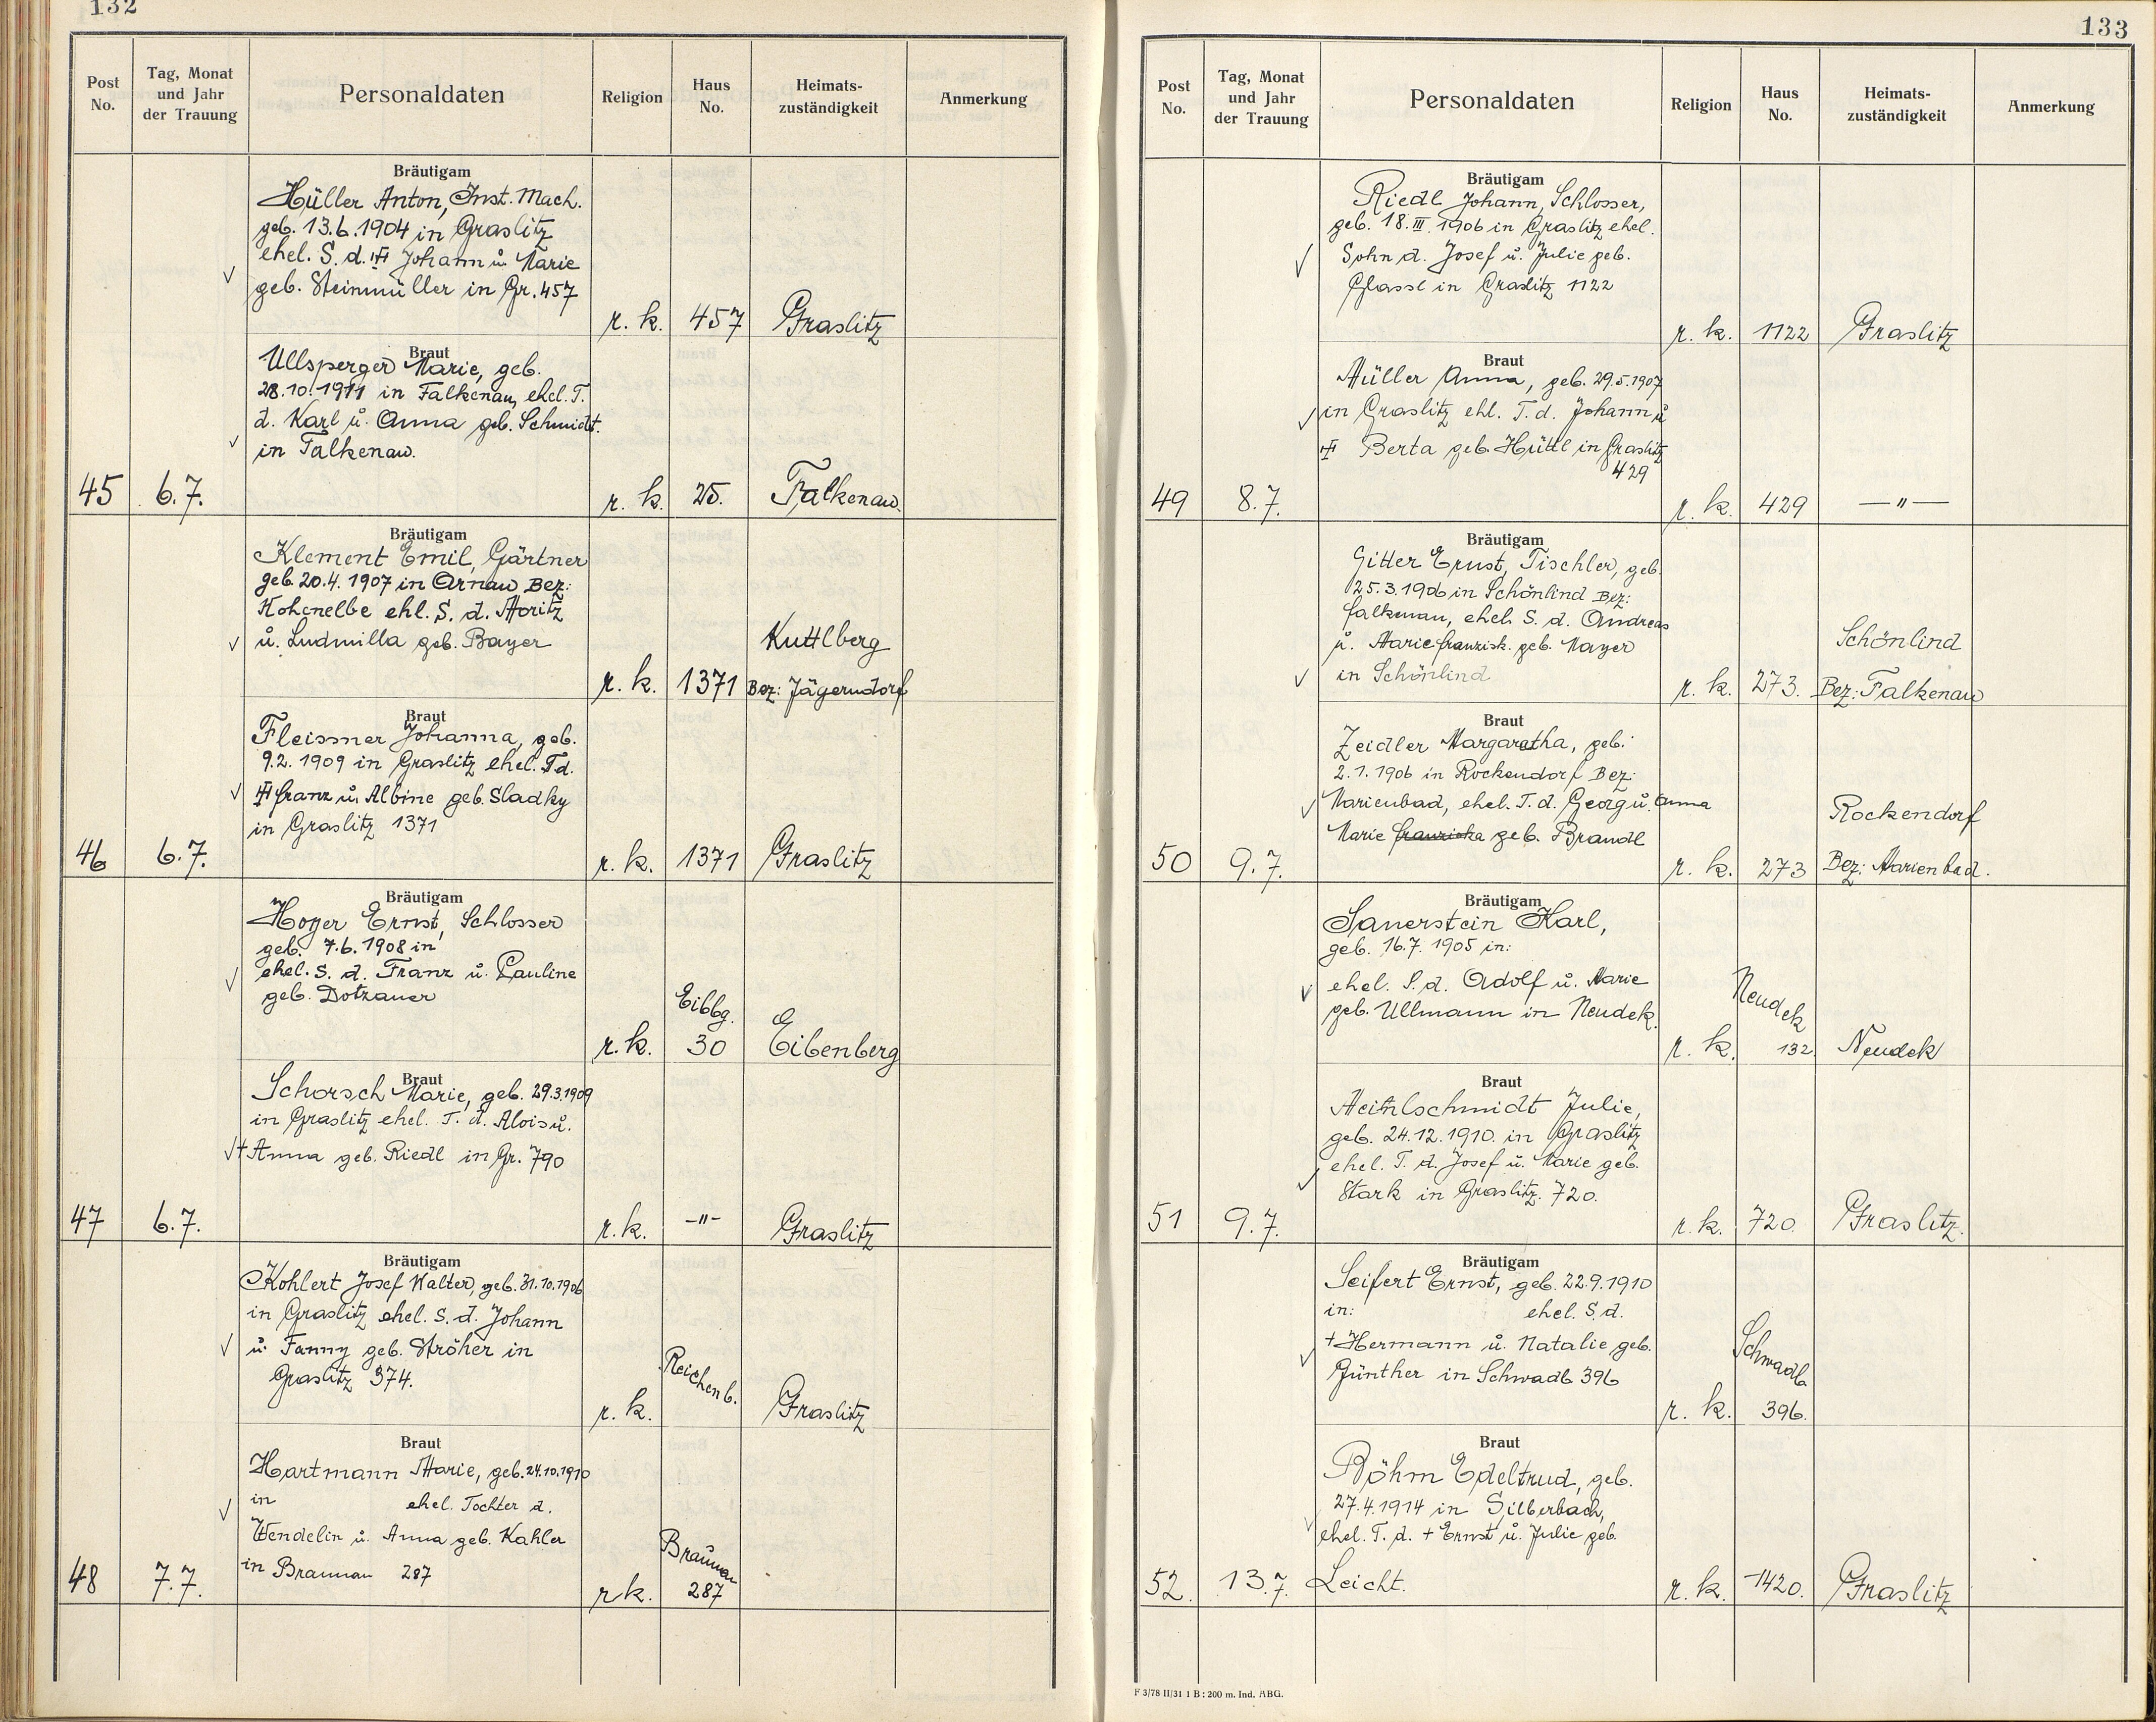 132
Post No.
Tag, Monat und Jahr der Trauung
Personaldaten
Religion
Haus No.
Heimats-zuständigkeit
Anmerkung
Bräutigam
Hüller Anton, Inst. Mach.
geb. 13.6.1904 in Graslitz
ehel. S. d. Johann u. Marie
geb. Steinmüller in Gr. 457
r. k. 457 Graslitz
Braut
Ullsperger Marie, geb.
28.10.1911 in Falkenau, ehel. T.
d. Karl u. Anna geb. Schmidt.
in Falkenau.
45 6.7. r. k. 25. Falkenau.
Bräutigam
Klement Emil, Gärtner
geb. 20.4. 1907 in Arnau Bez:
Hohenelbe ehl. S. d. Moritz
u. Ludmilla geb. Bayer
Kuttlberg
r. k. 1371 Bez: Jägerndorf
Braut
Fleissner Johanna, geb.
9.2. 1909 in Graslitz ehel. T d.
Franz u. Albine geb. Sladky
in Graslitz 1371
46 6.7. r. k. 1371 Graslitz
Bräutigam
Hoyer Ernst, Schlosser
geb. 7.6.1908 in
ehel. S. d. Franz u. Pauline
geb. Dotzauer
Eibbg.
r. k. 30 Eibenberg
Braut
Schorsch Marie, geb. 29.3.1909
in Graslitz ehel. T. d. Alois u.
+ Anna geb. Riedl in Gr. 790
47 6.7. r. k. -"- Graslitz
Bräutigam
Kohlert Josef Walter, geb. 31.10.1906
in Graslitz ehel. S. d. Johann
u. Fanny geb. Ströher in
Graslitz 374.
Reichenb.
r. k. Graslitz
Braut
Hartmann Marie, geb. 24.10.1910
in ehel. Tochter d.
Wendelin u. Anna geb. Kahler
in Braunau 287
Braunau
48 7.7. r k. 287
133
Post No.
Tag, Monat und Jahr der Trauung
Personaldaten
Religion
Haus No.
Heimats-zuständigkeit
Anmerkung
Bräutigam
Riedl Johann, Schlosser,
geb. 18. III. 1906 in Graslitz ehel.
Sohn d. Josef u. Julie geb.
Glassl in Graslitz 1122
r. k. 1122 Graslitz
Braut
Müller Anna, geb. 29.5.1907
in Graslitz ehl. T. d. Johann u
Berta geb. Hüttl in Graslitz
429
49 8.7. r. k. 429 —"—
Bräutigam
Gitter Ernst, Tischler, geb.
25.3.1906 in Schönlind Bez:
Falkenau, ehel. S. d. Andreas
u. Marie Franzisk. geb. Mayer
in Schönlind
Schönlind
r. k. 273. Bez: Falkenau
Braut
Zeidler Margaretha, geb.
2.1.1906 in Rockendorf Bez:
Marienbad, ehel. T. d. Georg u. Anna
Marie Franziska geb. Brandl
Rockendorf
50 9.7. r. k. 273 Bez: Marienbad.
Bräutigam
Sauerstein Karl,
geb. 16.7. 1905 in:
ehel. S. d. Adolf u. Marie
geb. Ullmann in Neudek.
Neudek
r. k. 132. Neudek
Braut
Meinlschmidt Julie,
geb. 24.12.1910. in Graslitz
ehel. T. d. Josef u. Marie geb.
Stark in Graslitz. 720.
51 9.7. r. k. 720. Graslitz.
Bräutigam
Seifert Ernst, geb. 22.9.1910
in: ehel. S. d.
+ Hermann u. Natalie geb.
Günther in Schwadb 396
Schwadb.
r. k. 396.
Braut
Böhm Edeltrud, geb.
27.4.1914 in Silberbach,
ehel. T. d. + Ernst u. Julie geb.
Leicht.
52. 13.7. r. k. 1420. Graslitz
F 3/78 II/31 1 B : 200 m. Ind. ABG.